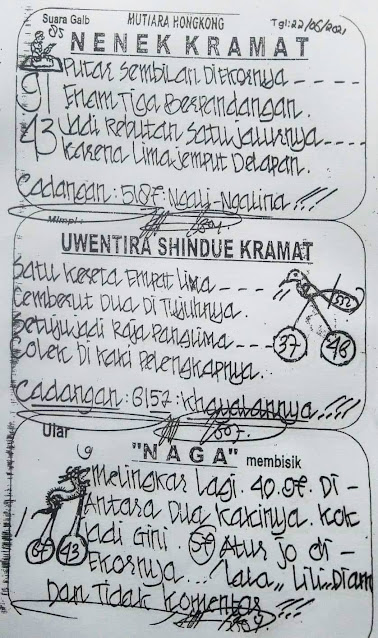 Suara Gaib MUTIARA HONGKONG Tgl:22/06/2021
NENEK KRAMAT
Putar Sembilan Di Ekornya ----
Enam Tiga Berpandangan.
Jadi Rebutan Satu Jalurnya----
Karena Lima Jemput Delapan.
91
43
Cadangan: 5187: Ngali-Ngalina
Mimpi:
UWENTIRA SHINDUE KRAMAT
Satu Kereta Empat Lima ----
Cemberut Dua Di Tujuhnya.
Setuju Jadi Raja Panglima ----
Colek Di Kaki Pelengkapnya.
37
Cadangan: 3157: Khayalannya
Ular
"NAGA" membisik
Melingkar Lagi. 40. Di-
Antara Dua Kakinya. Kok
Jadi Gini Atur Jo di-
Ekornya... Lala,, Lili..Diam
Dan Tidak Komentar
43